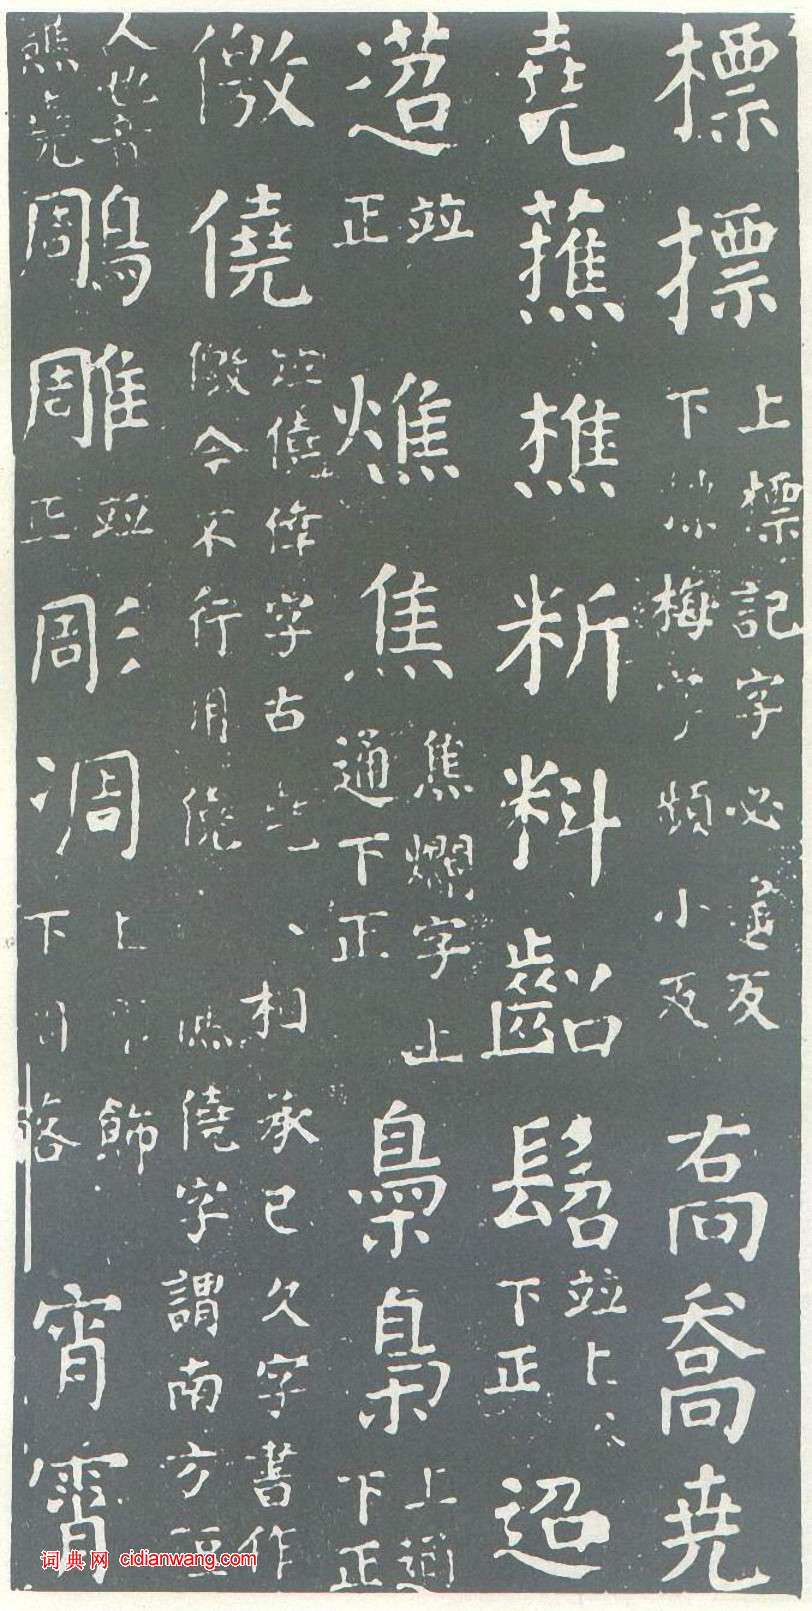 標摽上標記字必遙反下摽梅字頻小反𠾱喬尭
堯蕉樵䉼料齠髫並上俗下正迢
迢並正燋焦焦爛字上通下正梟梟上通下正
儌僥並僥倖字古堯、相承已久字書作儌今不行用僥僞僥字謂南方
人也音焦堯鵰雕並正彫凋上彫飾下凋落宵霄
词典网 cidianwang.com